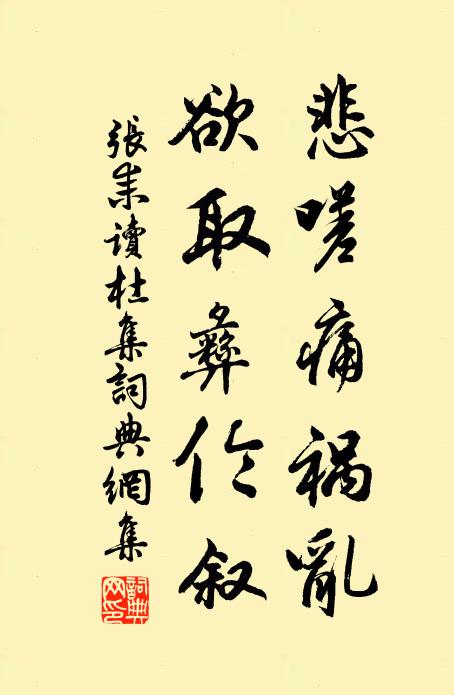 悲嗟痛祸亂
欲取彝伦叙
張耒讀杜集詞典網集
詞典网印